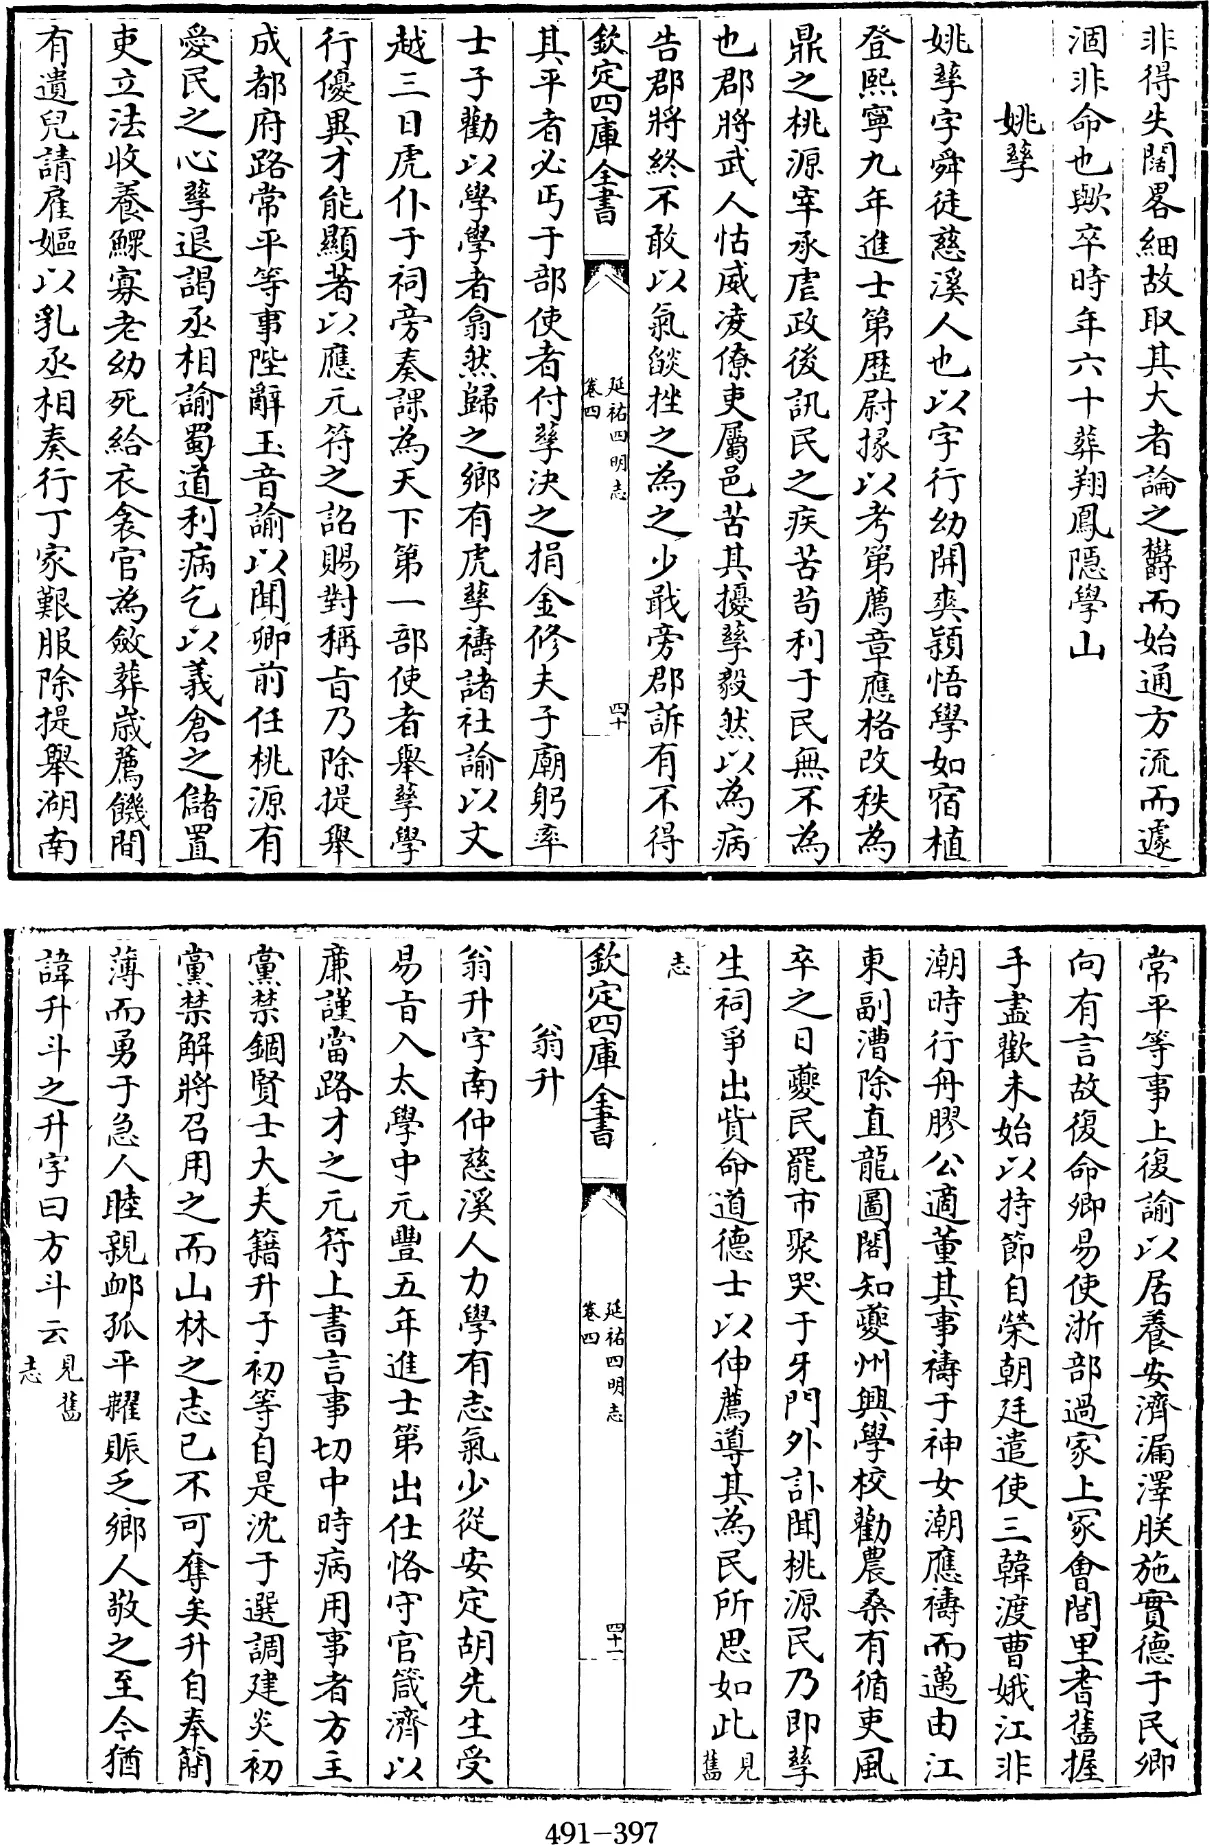 非得失闊畧細故取其大者論之欝而始通方流而遽
涸非命也歟卒時年六十葬翔鳳隱學山
姚孳
姚孳字舜徒慈溪人也以字行幼開爽穎悟學如宿植
登熙寧九年進士第歴尉掾以考第薦章應格改秩為
鼎之桃源宰承虐政後訊民之疾苦苟利于民無不為
也郡將武人怙威凌僚吏屬邑苦其擾孳毅然以為病
告郡將終不敢以氣燄挫之為之少戢旁郡訴有不得
欽定四庫全書
延祐四明志
卷四
四十
其平者必丐于部使者付孳決之捐金修夫子廟躬率
士子勸以學學者翕然歸之鄉有虎孳禱諸社諭以文
越三日虎仆于祠旁奏課為天下第一部使者舉孳學
行優異才能顯著以應元符之詔賜對稱旨乃除提舉
成都府路常平等事陛辭玉音諭以聞卿前任桃源有
愛民之心孳退謁丞相諭蜀道利病乞以義倉之儲置
吏立法收養鰥寡老幼死給衣衾官為斂葬歳薦饑間
有遺兒請雇嫗以乳丞相奏行丁家艱服除提舉湖南
常平等事上復諭以居養安濟漏澤朕施實德于民卿
向有言故復命卿易使浙部過家上冢會閭里耆舊握
手盡歡未始以持節自榮朝廷遣使三韓渡曹娥江非
潮時行舟膠公適董其事禱于神女潮應禱而邁由江
東副漕除直龍圖閣知夔州興學校勸農桑有循吏風
卒之日夔民罷市聚哭于牙門外訃聞桃源民乃即孳
生祠爭出貲命道德士以伸薦導其為民所思如此見舊
志
欽定四庫全書
延祐四明志
卷四
四十一
翁升
翁升字南仲慈溪人力學有志氣少從安定胡先生受
易旨入太學中元豐五年進士第出仕恪守官箴濟以
亷謹當路才之元符上書言事切中時病用事者方主
黨禁錮賢士大夫籍升于初等自是沈于選調建炎初
黨禁解將召用之而山林之志已不可奪矣升自奉簡
薄而勇于急人睦親䘏孤平糶賑乏鄉人敬之至今猶
諱升斗之升字曰方斗云見舊志
491-397